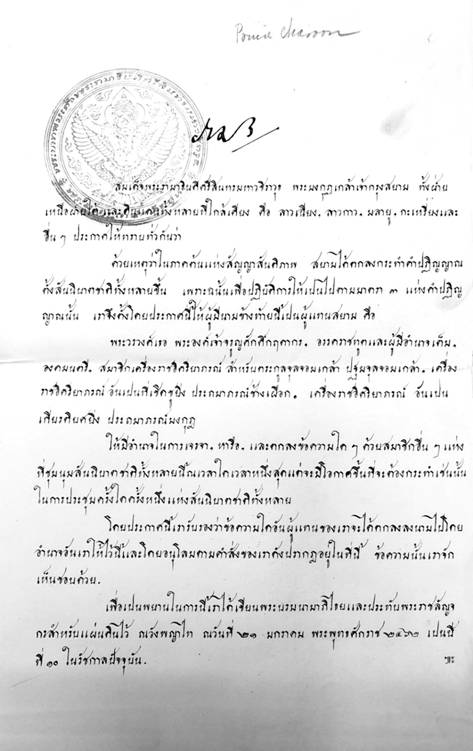 Prince Charoon
สมเด็จพระรามาธิบดีศรีสินทรมหาวชิราวุธ พระมงกุฎเกล้าเจ้ากรุงสยาม ทั้งฝ่าย
เหนือฝ่ายใต้และดินแดนทั้งหลายที่ใกล้เคียง คือ ลาวเฉียง. ลาวกาว. มลายู. กะเหรี่ยงและ
อื่น ๆ ประกาศให้ทราบทั่วกันว่า
ด้วยเหตุว่าในภาคต้นแห่งสัญญาสันติภาพ สยามได้ตกลงกระทำคำปฏิญญาณ
ตั้งสันนิบาตชาติทั้งหลายขึ้น เพราะฉนั้นเพื่อปฏิบัติการให้เป็นไปตามมาตรา ๓ แห่งคำปฏิญ
ญาณนั้น เราจึงตั้งโดยประกาศนี้ให้ผู้มีนามข้างท้ายนี้เป็นผู้แทนสยาม คือ
พระวรวงศ์เธอ พระองค์เจ้าจรูญศักดิ์กฤดากร. อรรคราชทูตและผู้มีอำนาจเต็ม.
องคมนตรี. สมาชิกเครื่องราชอิศริยาภรณ์ สำหรับตระกูลจุลจอมเกล้า ปฐมจุลจอมเกล้า. เครื่อง
ราชอิศริยาภรณ์ อันเป็นที่เชิดชูยิ่ง ประถมาภรณ์ช้างเผือก. เครื่องราชอิศริยาภรณ์ อันเป็น
เกียรติยศยิ่ง ประถมาภรณ์มงกุฎ
ให้มีอำนาจในการเจรจา. หารือ. และตกลงข้อความใด ๆ ด้วยสมาชิกอื่น ๆ แห่ง
ที่ชุมนุมสันนิบาตชาติทั้งหลายนี้ณเวลาใดเวลาหนึ่งสุดแต่จะมีโอกาศขึ้นที่จะต้องกระทำเช่นนั้น
ในการประชุมครั้งใดครั้งหนึ่งแห่งสันนิบาตชาติทั้งหลาย
โดยประกาศนี้เรารับรองว่าข้อความใดอันผู้แทนของเราจะได้ตกลงลงนามไปโดย
อำนาจอันเราให้ไว้นี้และโดยอนุโลมตามคำสั่งของเราดังปรากฏอยู่ในที่นี้ ข้อความนั้นเราจัก
เห็นชอบด้วย.
เพื่อเป็นพยานในการนี้เราได้เซ็นพระบรมนามาภิไธยและประทับพระราชลัญจ
กรสำหรับแผ่นดินไว้ ณวังพญาไท ณวันที่ ๒๑ มกราคม พระพุทธศักราช ๒๔๖๒ เป็นปี
ที่ ๑๐ ในรัชกาลปัจจุบัน.